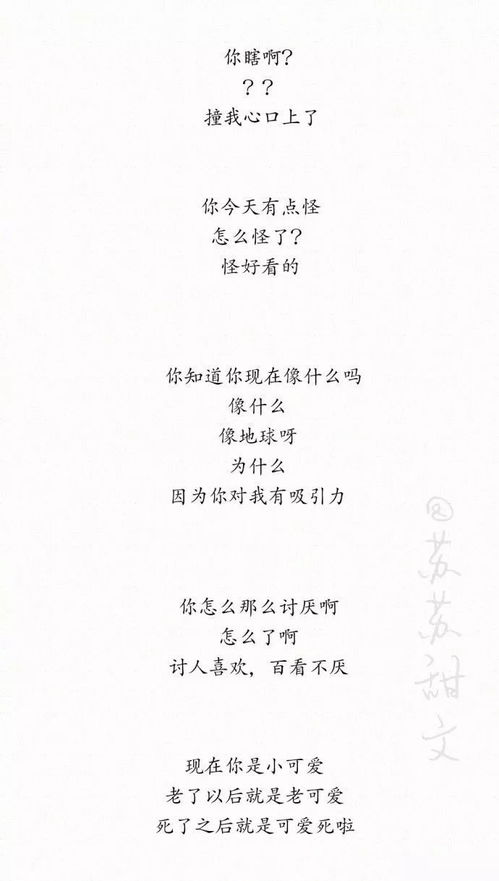 你瞎啊?
? ?
撞我心口上了
你今天有点怪
怎么怪了?
怪好看的
你知道你现在像什么吗
像什么
像地球呀
为什么
因为你对我有吸引力
你怎么那么讨厌啊
怎么了啊
讨人喜欢，百看不厌
现在你是小可爱
老了以后就是老可爱
死了之后就是可爱死啦
@苏苏甜文